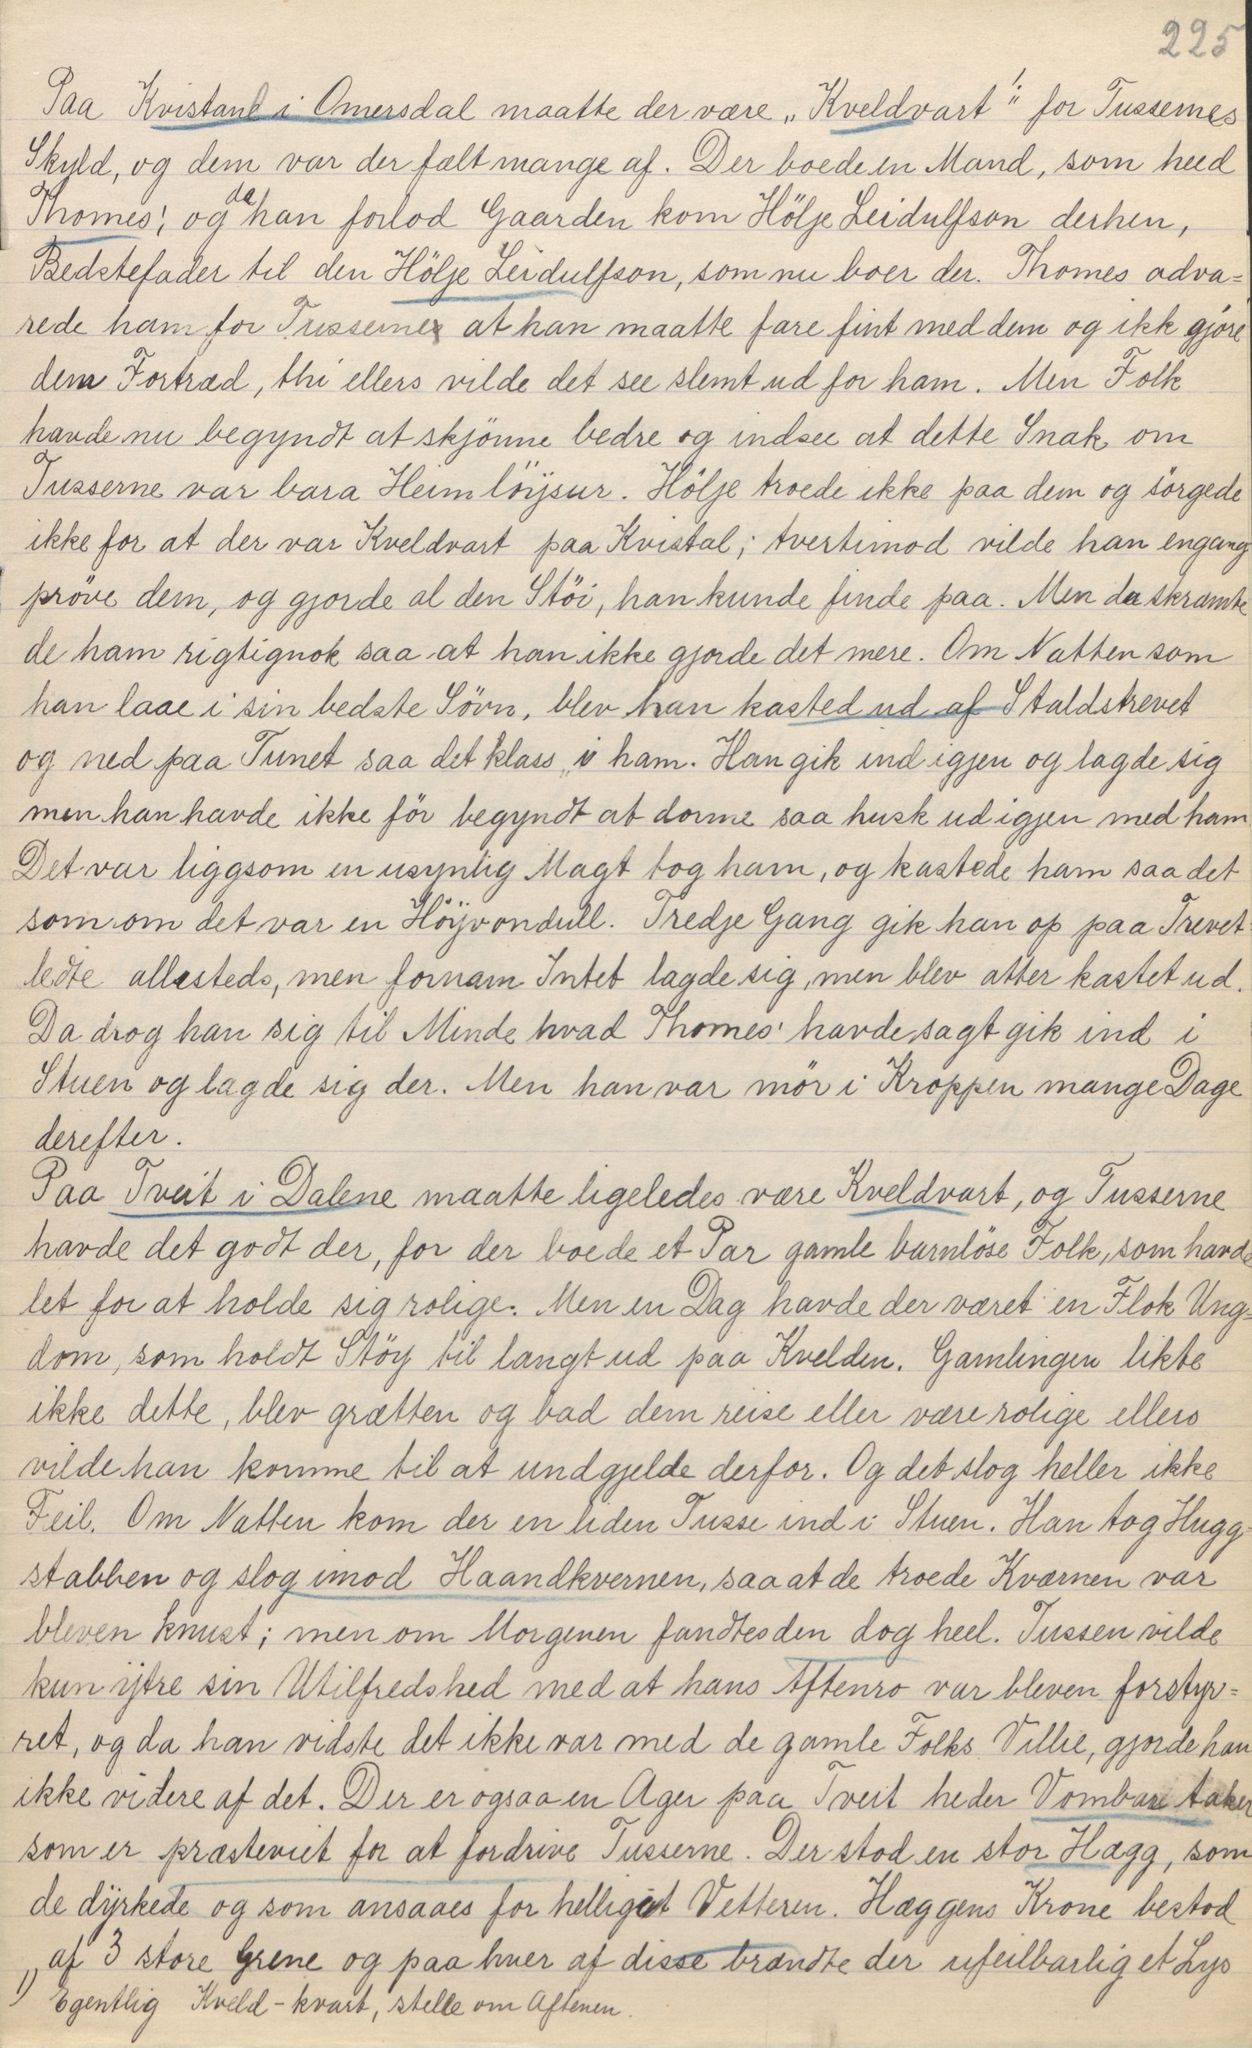 225
Paa Kvistanl i Omersdal maatte der være „Kveldvart"¹ for Tussernes
Skyld, og dem var der fælt mange af. Der boede en Mand, som heed
Thomes', og da han forlod Gaarden kom Hölje Leidulfson derhen,
Bedstefader til den Hölje Leidulfson, som nu boer der. Thomes adva=
rede ham for Tusserne at han maatte fare fint med dem og ikk gjöre
dem Fortræd, thi ellers vilde det see slemt ud for ham. Men Folk
havde nu begyndt at skjönne bedre og indsee at dette Snak om
Tusserne var bara Heimlöÿsur. Hölje troede ikke paa dem og sörgede
ikke for at der var Kveldvart paa Kvistal; tvertimod vilde han engang
pröve dem, og gjorde al den Stöi, han kunde finde paa. Men da skræmte
de ham rigtignok saa at han ikke gjorde det mere. Om Natten som
han laae i sin bedste Sövn, blev han kasted ud af Staldstrevet
og ned paa Tunet saa det klass „i ham. Han gik ind igjen og lagde sig
men han havde ikke för begyndt at dorme saa husk ud igjen med ham
Det var liggsom en usynlig Magt tog ham, og kastede ham saa det
som om det var en Höÿvondull. Tredje Gang gik han op paa Trevet
ledte allesteds, men fornam Intet lagde sig, men blev atter kastet ud.
Da drog han sig til Minde hvad Thomes' havde sagt gik ind i
Stuen og lagde sig der. Men han var mör i Kroppen mange Dage
derefter.
Paa Tveit i Dalene maatte ligeledes være Kveldvart, og Tusserne
havde det godt der, for der boede et Par gamle barnlöse Folk, som havde
let for at holde sig rolige. Men en Dag havde der været en Flok Ung=
dom, som holdt Stöy til langt ud paa Kvelden. Gamlingen likte
ikke dette, blev grætten og bad dem reise eller være rolige ellers
vilde han komme til at undgjelde derfor. Og det slog heller ikke
Feil. Om Natten kom der en liden Tusse ind i Stuen. Han tog Hugg=
stabben og slog imod Haandkvernen, saa at de troede Kværnen var
bleven knust; men om Morgenen fandtes den dog heel. Tussen vilde
kun ÿtre sin Utilfredshed med at hans Aftenro var bleven forstyr=
ret, og da han vidste det ikke var med de gamle Folks Villie, gjorde han
ikke videre af det. Der er ogsaa en Ager paa Tveit heder Vombaretaker
som er præsteviet for at fordrive Tusserne. Der stod en stor Hægg, som
de dÿrkede og som ansaaes for helliget Vetteren. Hæggens Krone bestod
af 3 store Grene og paa hver af disse brændte der ufeilbarlig et Lys
1) Egentlig Kveld-kvart, stelle om Aftenen.